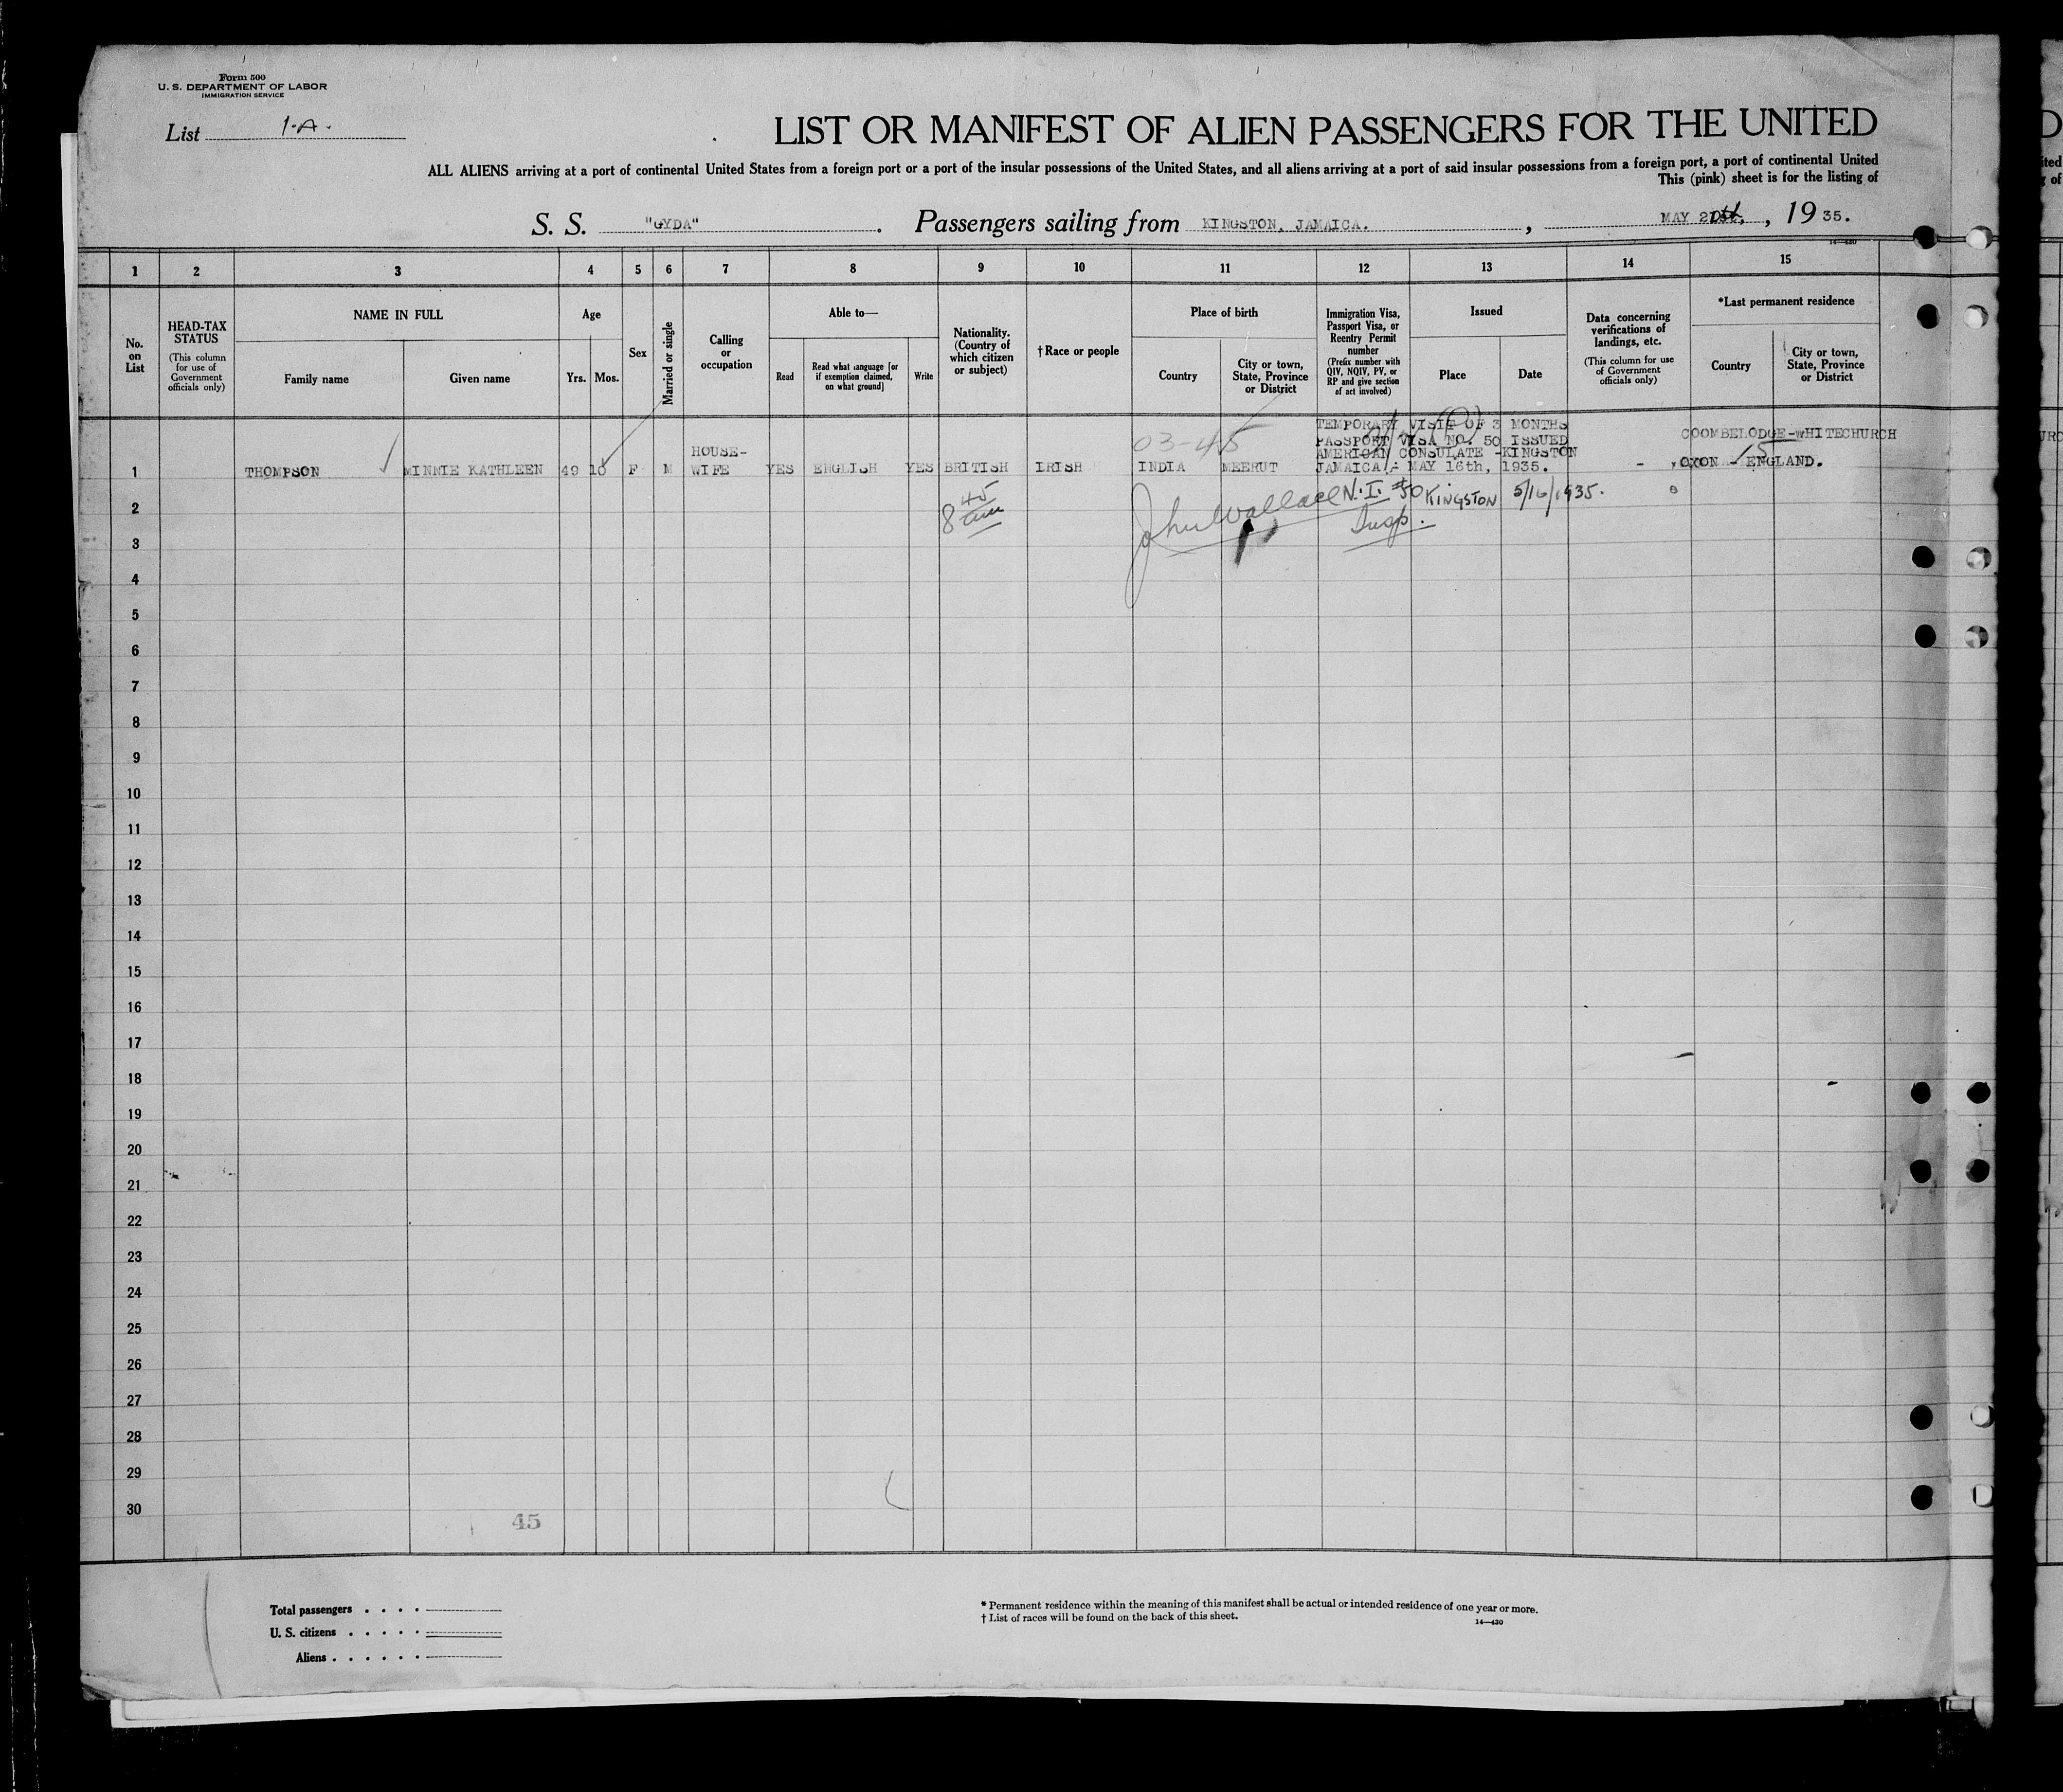 Form 500
U. S. DEPARTMENT OF LABOR
IMMIGRATION SERVICE
List 1-A.
LIST OR MANIFEST OF ALIEN PASSENGERS FOR THE UNITED
ALL ALIENS arriving at a port of continental United States from a foreign port or a port of the insular possessions of the United States, and all aliens arriving at a port of said insular possessions from a foreign port, a port of continental United
This (pink) sheet is for the listing of
S. S. "GYDA" . Passengers sailing from KINGSTON, JAMAICA. , MAY , 1935.
14—430
1 2 3 4 5 6 7 8 9 10 11 12 13 14 15
No. on List
HEAD-TAX STATUS
(This column for use of Government officials only)
NAME IN FULL
Family name
Given name
Age
Yrs. Mos.
Sex
Married or single
Calling or occupation
Able to—
Read
Read what language [or if exemption claimed, on what ground]
Write
Nationality. (Country of which citizen or subject)
† Race or people
Place of birth
Country
City or town, State, Province or District
Immigration Visa, Passport Visa, or Reentry Permit number
(Prefix number with QIV, NQIV, PV, or RP and give section of act involved)
Issued
Place
Date
Data concerning verifications of landings, etc.
(This column for use of Government officials only)
*Last permanent residence
Country
City or town, State, Province or District
03-45
TEMPORARY VISIT OF 3 MONTHS
PASSPORT VISA NO. 50 ISSUED
AMERICAN CONSULATE -KINGSTON
JAMAICA,- MAY 16th, 1935.
COOMBELODGE-WHITECHURCH
OXON - ENGLAND.
15
1 THOMPSON MINNIE KATHLEEN 49 10 F M HOUSE-WIFE YES ENGLISH YES BRITISH IRISH INDIA MEERUT
2 8 45 am John Wallace N.I. #50 KINGSTON 5/16/1935.
Insp.
3
4
5
6
7
8
9
10
11
12
13
14
15
16
17
18
19
20
21
22
23
24
25
26
27
28
29
30
45
Total passengers . . . .
U. S. citizens . . . . .
Aliens . . . . . .
* Permanent residence within the meaning of this manifest shall be actual or intended residence of one year or more.
† List of races will be found on the back of this sheet.
14—430